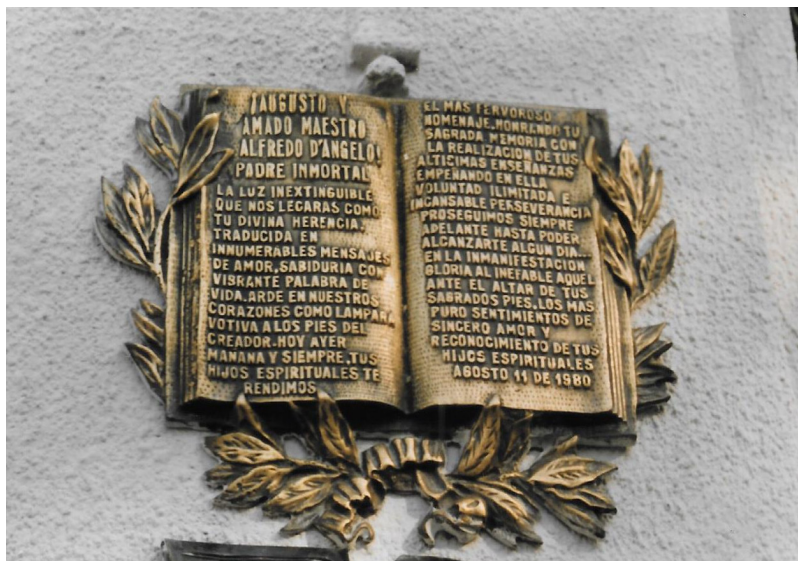 ¡AUGUSTO Y
AMADO MAESTRO
ALFREDO D'ANGELO!
PADRE INMORTAL
LA LUZ INEXTINGUIBLE
QUE NOS LEGARAS COMO
TU DIVINA HERENCIA.
TRADUCIDA EN
INNUMERABLES MENSAJES
DE AMOR, SABIDURIA CON
VIBRANTE PALABRA DE
VIDA. ARDE EN NUESTROS
CORAZONES COMO LAMPARA
VOTIVA A LOS PIES DEL
CREADOR. HOY AYER
MAÑANA Y SIEMPRE, TUS
HIJOS ESPIRITUALES TE
RENDIMOS
EL MAS FERVOROSO
HOMENAJE, HONRANDO TU
SAGRADA MEMORIA CON
LA REALIZACION DE TUS
ALTISIMAS ENSEÑANZAS
EMPEÑANDO EN ELLA
VOLUNTAD ILIMITADA E
INCANSABLE PERSEVERANCIA
PROSEGUIMOS SIEMPRE
ADELANTE HASTA PODER
ALCANZARTE ALGUN DIA...
EN LA INMANIFESTACION
GLORIA AL INEFABLE AQUEL
ANTE EL ALTAR DE TUS
SAGRADOS PIES, LOS MAS
PURO SENTIMIENTOS DE
SINCERO AMOR Y
RECONOCIMIENTO DE TUS
HIJOS ESPIRITUALES
AGOSTO 11 DE 1980